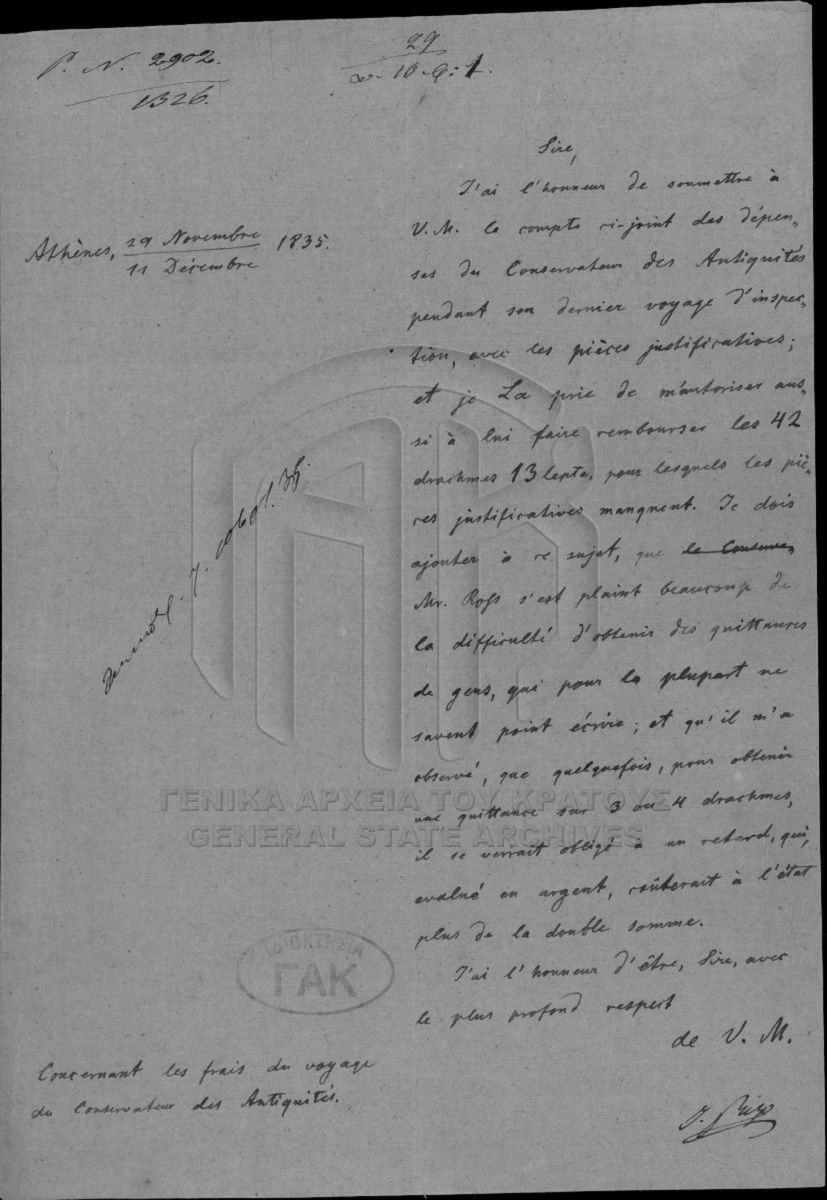 P. N. 2902.
1326.
29
Athènes, 29 Novembre 1835.
11 Décembre
Sire,
J'ai l'honneur de soumettre à
V.M. le compte ci-joint des dépen-
ses du Conservateur des Antiquités
pendant son dernier voyage d'inspec-
tion, avec les pièces justificatives;
et je La prie de m'autoriser aus-
si à lui faire rembourser les 42
drachmes 13 lepta, pour lesquels les piè-
ces justificatives manquent. Je dois
ajouter à ce sujet, que le Conserva-
Mr. Ross s'est plaint beaucoup de
la difficulté d'obtenir des quittances
de gens, qui pour la plupart ne
savent point écrire; et qu'il m'a
observé, que quelquefois, pour obtenir
une quittance sur 3 ou 4 drachmes,
il se verrait obligé à un retard, qui,
evalué en argent, coûterait à l'état
plus de la double somme.
J'ai l'honneur d'être, Sire, avec
le plus profond respect
de V. M.
J. Rizo
Concernant les frais du voyage
du Conservateur des Antiquités.
ΓΕΝΙΚΑ ΑΡΧΕΙΑ ΤΟΥ ΚΡΑΤΟΥΣ
GENERAL STATE ARCHIVES
ΙΔΙΟΚΤΗΣΙΑ
ΓΑΚ